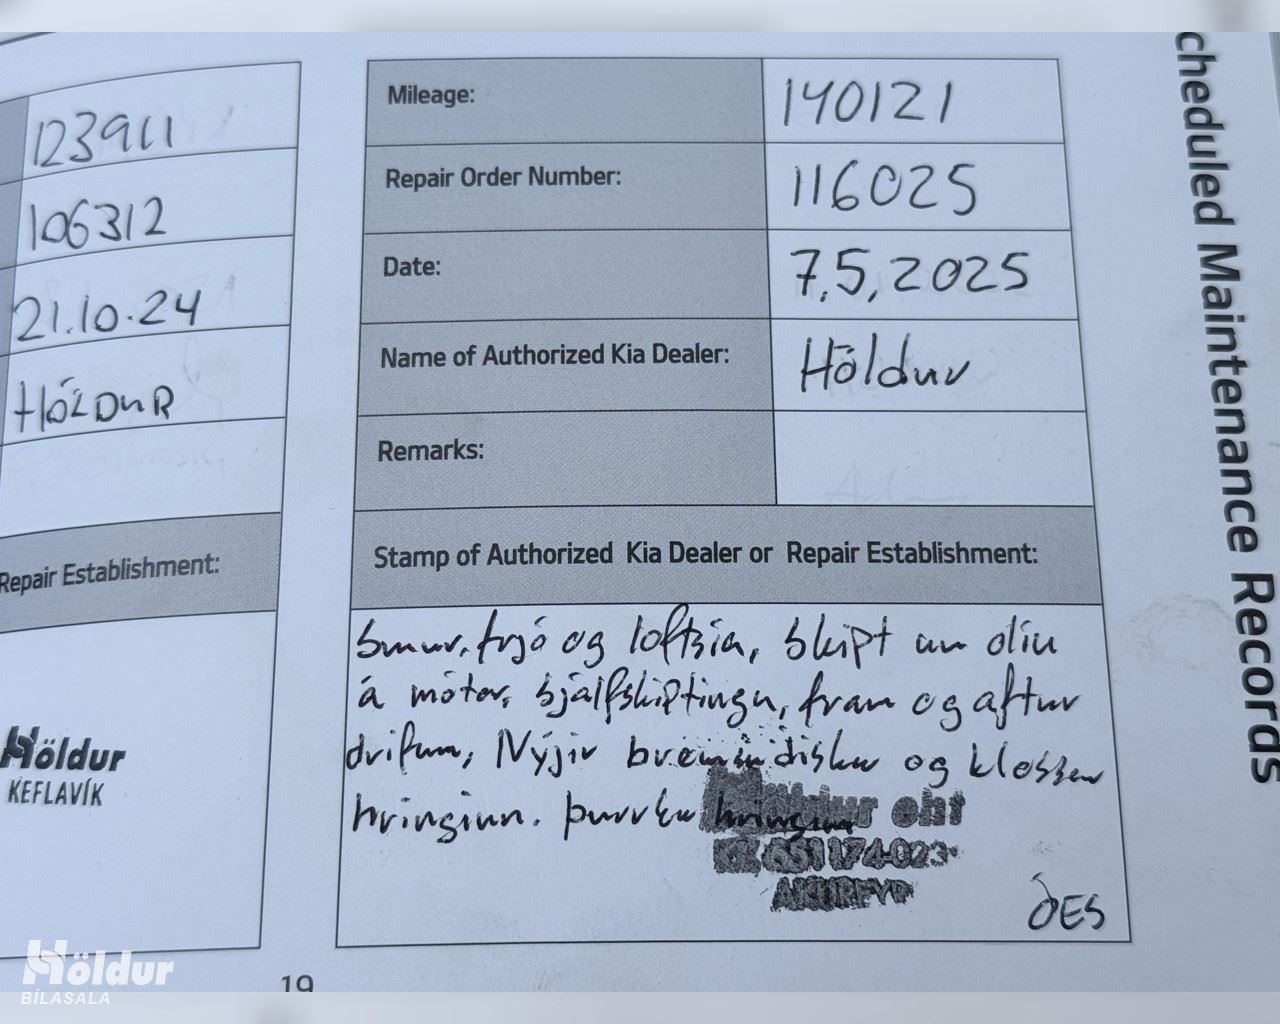 123911
106312
21.10.24
HÖLDUR
Repair Establishment:
Höldur
KEFLAVÍK
Mileage: 140121
Repair Order Number: 116025
Date: 7,5,2025
Name of Authorized Kia Dealer: Höldur
Remarks:
Stamp of Authorized Kia Dealer or Repair Establishment:
Smur, frjó og loftsía, Skipt um olíu
á mótor, sjálfskiptingu, fram og aftur
drifum, Nýjir bremsudiskar og klossar
hringinn. þurrkur hringinn
Höldur ehf
AKUREYRI
ÖES
19
cheduled Maintenance Records
Höldur
BÍLASALA